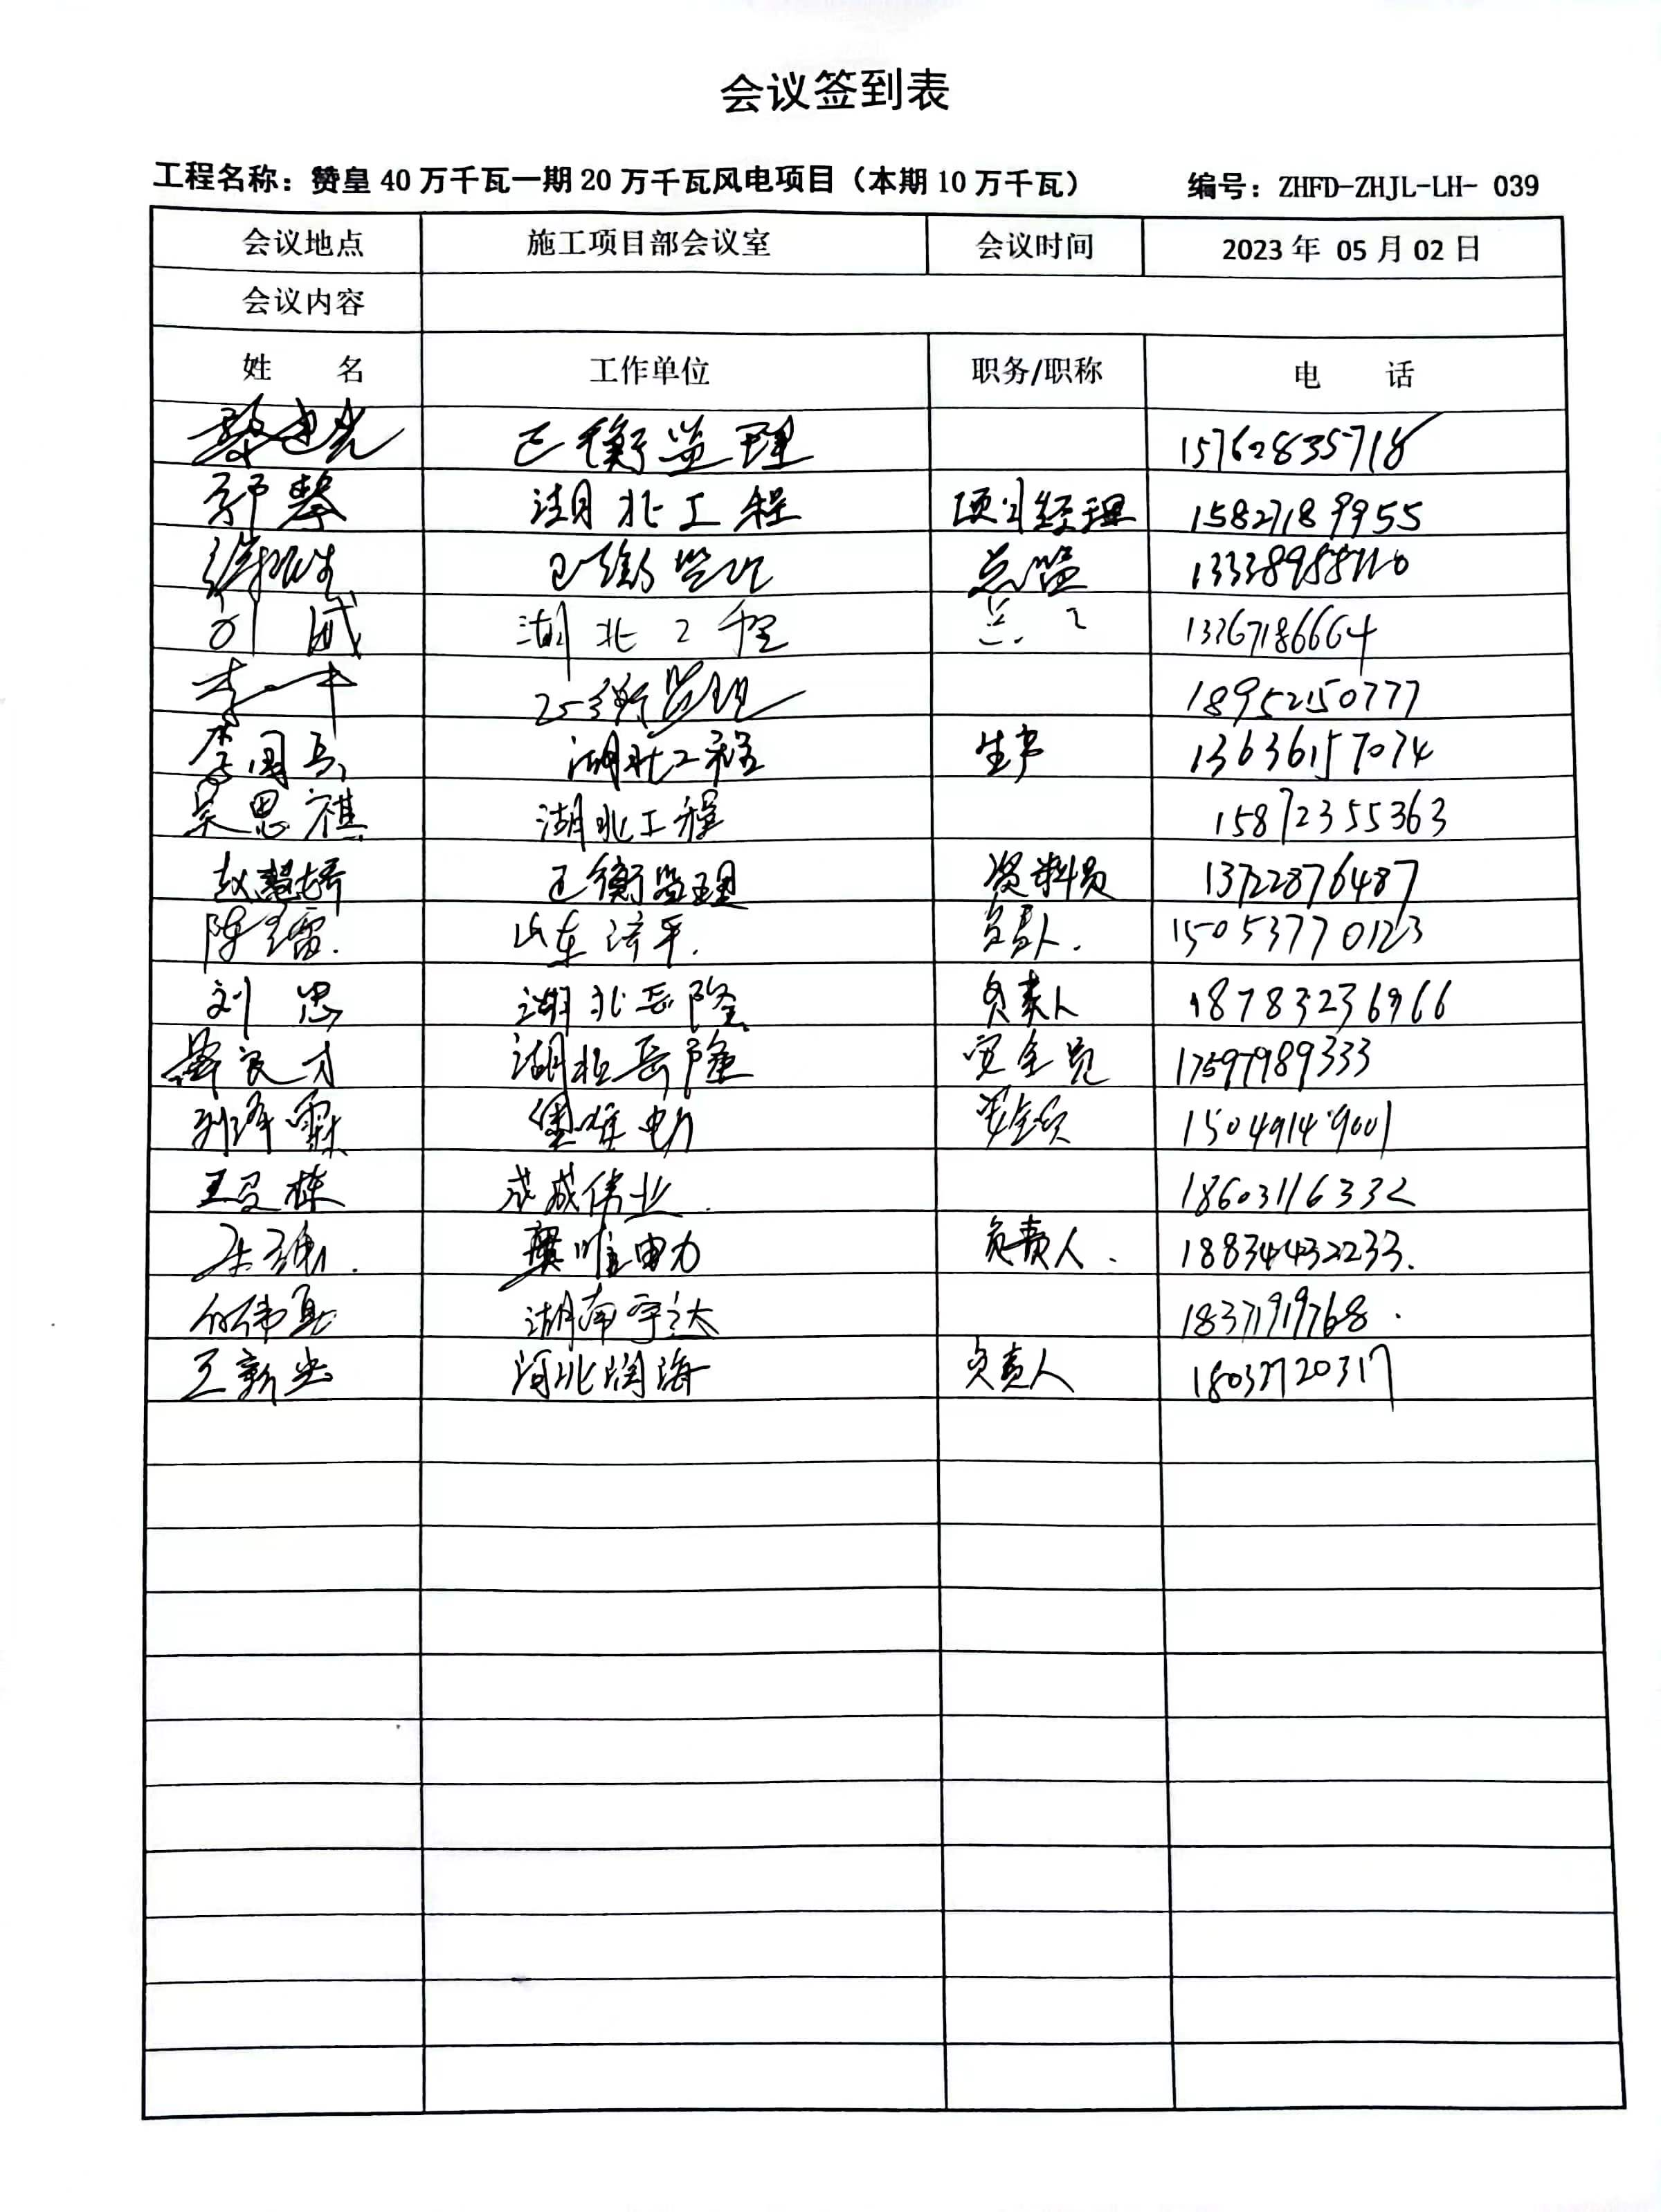 会议签到表
工程名称：赞皇 40 万千瓦一期 20 万千瓦风电项目（本期 10 万千瓦） 编号：ZHFD-ZHJL-LH- 039
会议地点 施工项目部会议室 会议时间 2023 年 05 月 02 日
会议内容
姓 名 工作单位 职务/职称 电 话
正衡监理 15762835718
郭攀 湖北工程 项目经理 15827189955
正衡监理 总监
刘 威 湖北工程 13367186664
李一平 正衡监理 18952150777
李国兵 湖北工程 生产 13636157074
吴思祺 湖北工程 15872355363
赵慧娇 正衡监理 资料员 13722876487
陈 雷. 山东济平. 负责人. 15053770123
刘 忠 湖北岳隆 负责人 18783236966
良才 湖北岳隆 安全员 17597989333
刘泽霖 电力 安全员 15049149001
王 栋 成伟业. 18603116332
唯电力 负责人. 18834432233.
何伟 湖南宇达 18371919768.
王新忠 河北 海 负责人 18037720317